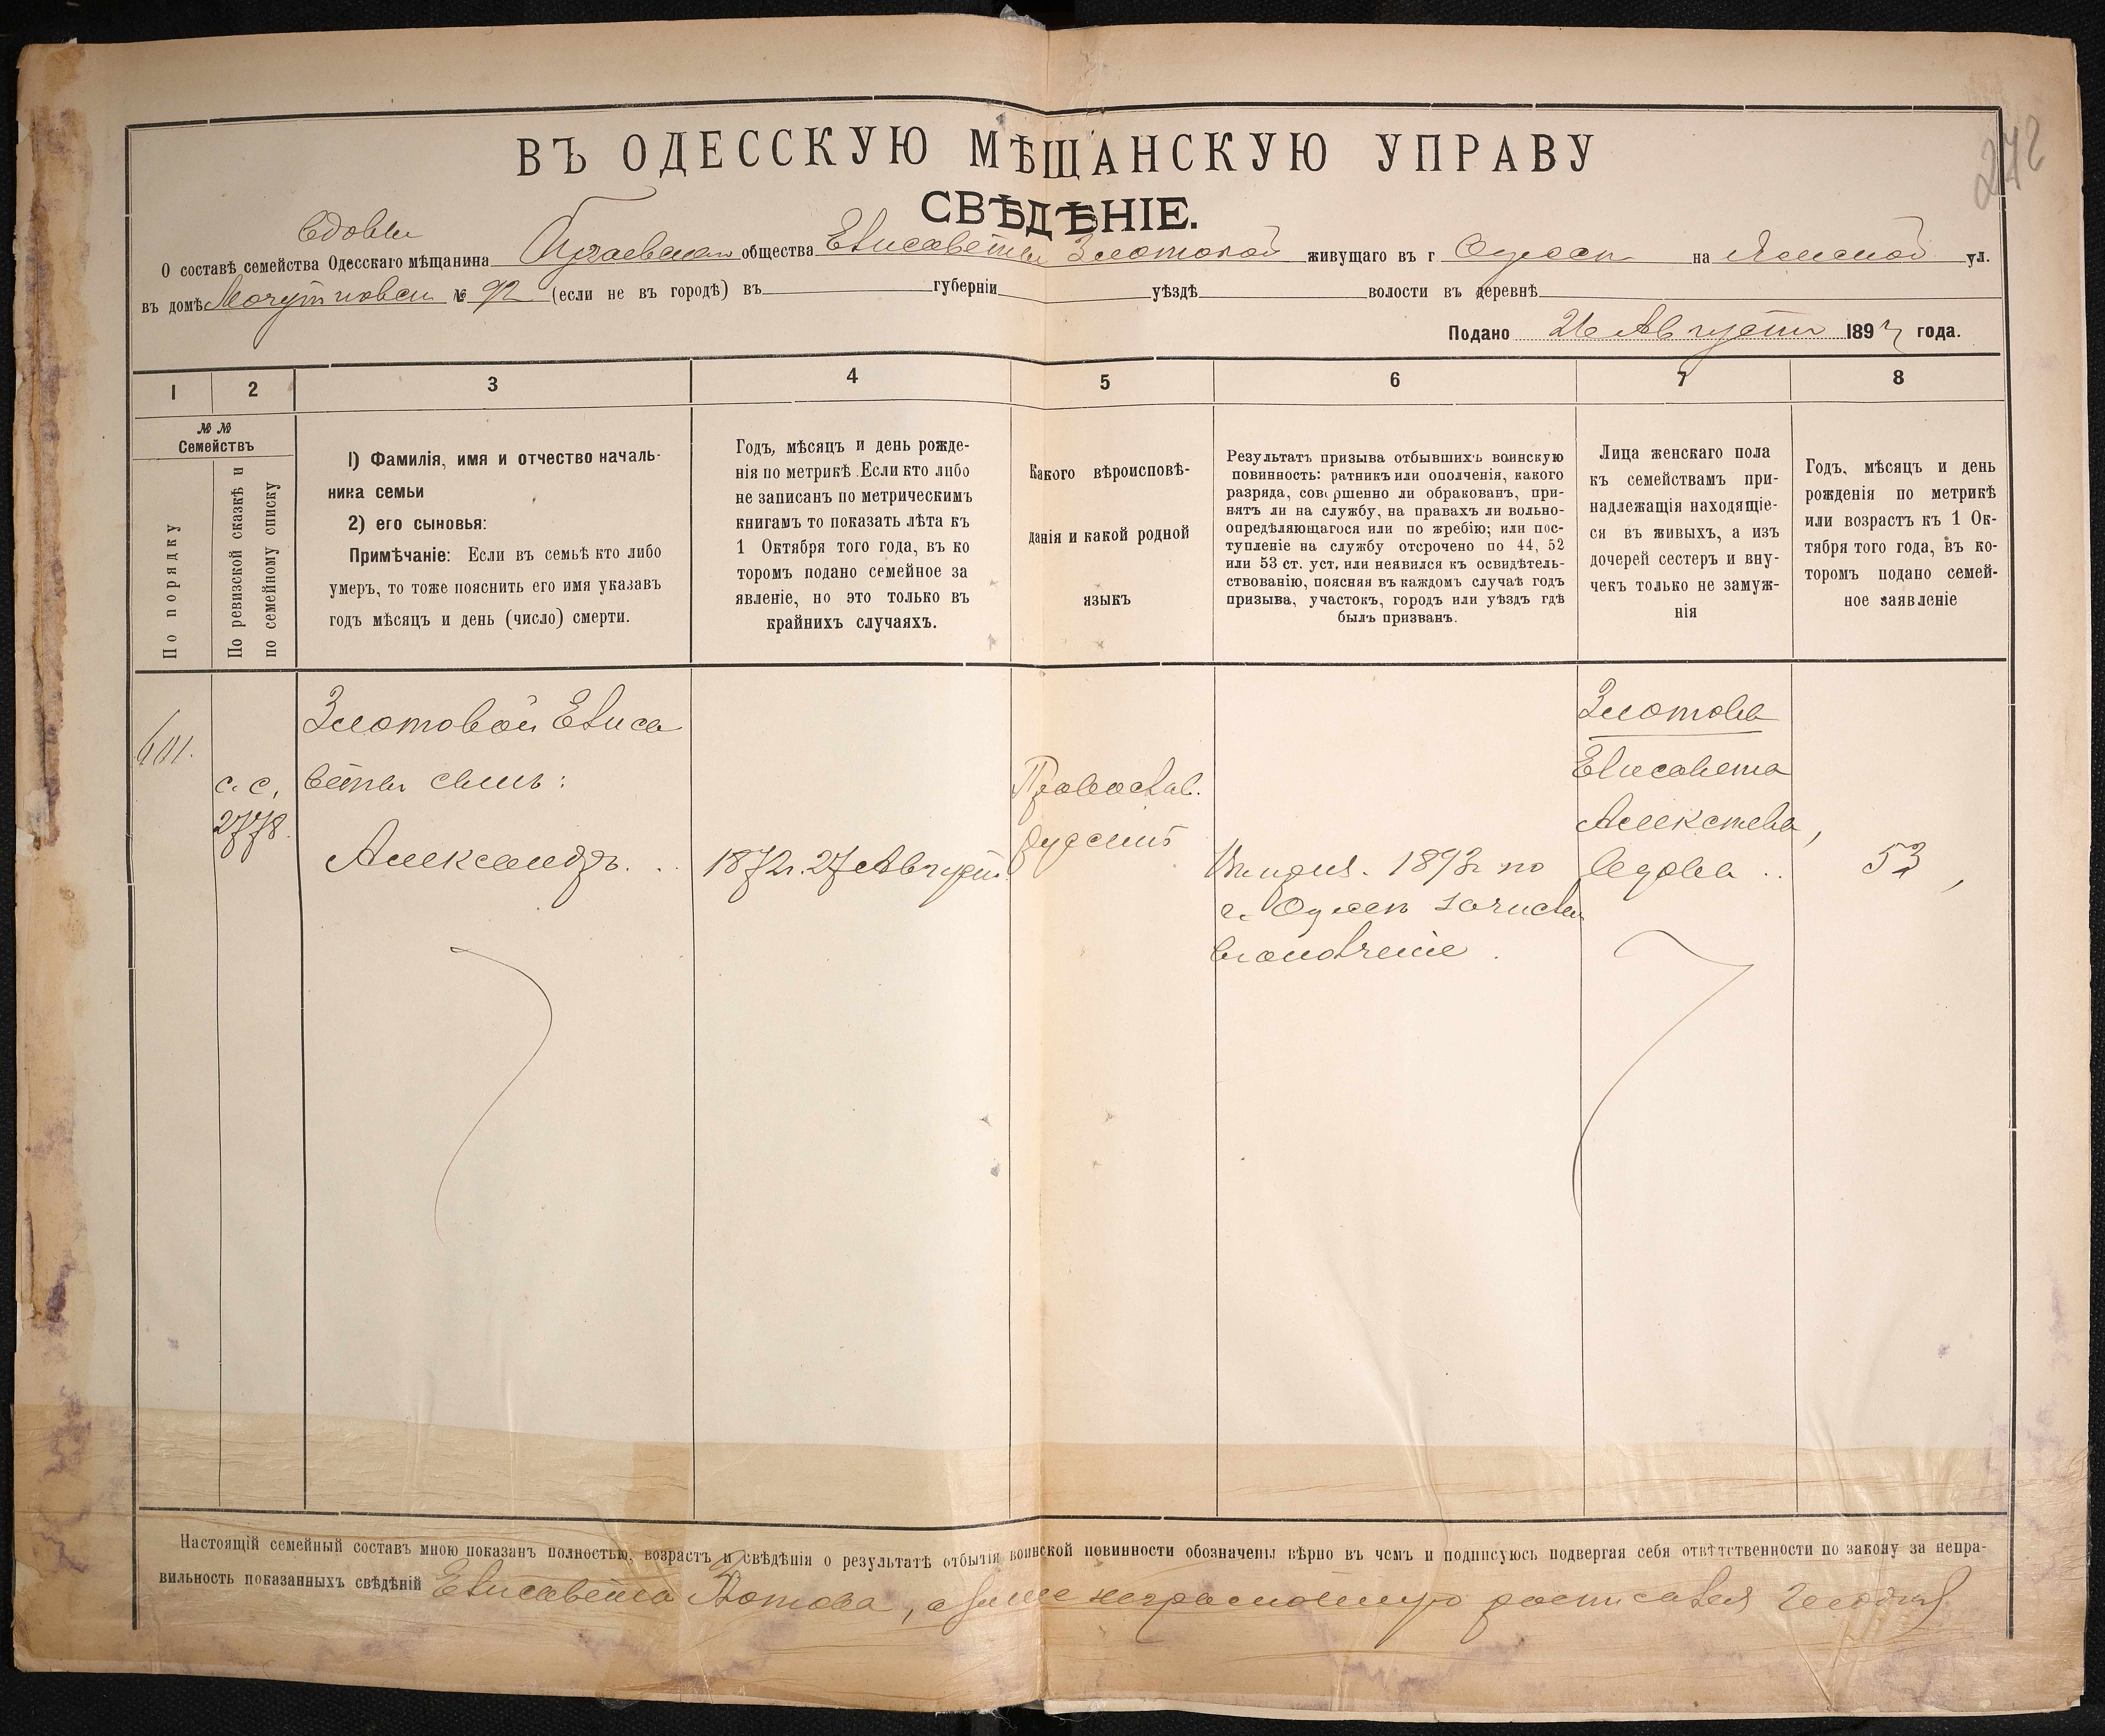 242
ВЪ ОДЕССКУЮ МѢЩАНСКУЮ УПРАВУ
СВѢДѢНІЕ.
вдовы
О составѣ семейства Одесскаго мѣщанина общества Елисаветы Злотовой живущаго въ г Одессѣ на Ямской ул.
въ домѣ № 92 (если не въ городѣ) въ губерніи уѣздѣ волости въ деревнѣ
Подано 26 Августа 189 года.
1 2 3 4 5 6 7 8
№ №
Семействъ
По порядку
По ревизской сказкѣ и
по семейному списку
1) Фамилія, имя и отчество началь-
ника семьи
2) его сыновья:
Примѣчаніе: Если въ семьѣ кто либо
умеръ, то тоже пояснить его имя указавъ
годъ мѣсяцъ и день (число) смерти.
Годъ, мѣсяцъ и день рожде-
нія по метрикѣ. Если кто либо
не записанъ по метрическимъ
книгамъ то показать лѣта къ
1 Октября того года, въ ко
торомъ подано семейное за
явленіе, но это только въ
крайнихъ случаяхъ.
Какого вѣроисповѣ-
данія и какой родной
языкъ
Результатъ призыва отбывшихъ воинскую
повинность: ратникъ или ополченія, какого
разряда, совершенно ли обракованъ, при-
нятъ ли на службу, на правахъ ли вольно-
опредѣляющагося или по жребію; или пос-
тупленіе на службу отсрочено по 44, 52
или 53 ст. уст. или неявился къ освидѣтель-
ствованію, поясняя въ каждомъ случаѣ годъ
призыва, участокъ, городъ или уѣздъ гдѣ
былъ призванъ.
Лица женскаго пола
къ семействамъ при-
надлежащія находящіе-
ся въ живыхъ, а изъ
дочерей сестеръ и вну-
чекъ только не замуж-
нія
Годъ, мѣсяцъ и день
рожденія по метрикѣ
или возрастъ къ 1 Ок-
тября того года, въ ко-
торомъ подано семей-
ное заявленіе
601.
с. с.
2778.
Злотовой Елиса
веты сынъ:
Александръ. . .
1872г. 27 Августа.
Православ.
русскій
1893г по
г. Одессѣ зачислен
в ополченіе.
Злотова
Елисавета
Алексѣева,
вдова ..
53,
Настоящій семейный составъ мною показанъ полностью, возрастъ и свѣдѣнія о результатѣ отбытія воинской повинности обозначены вѣрно въ чемъ и подписуюсь подвергая себя отвѣтственности по закону за непра-
вильность показанныхъ свѣдѣній Елисавета Злотова, а за нее неграмотную росписался